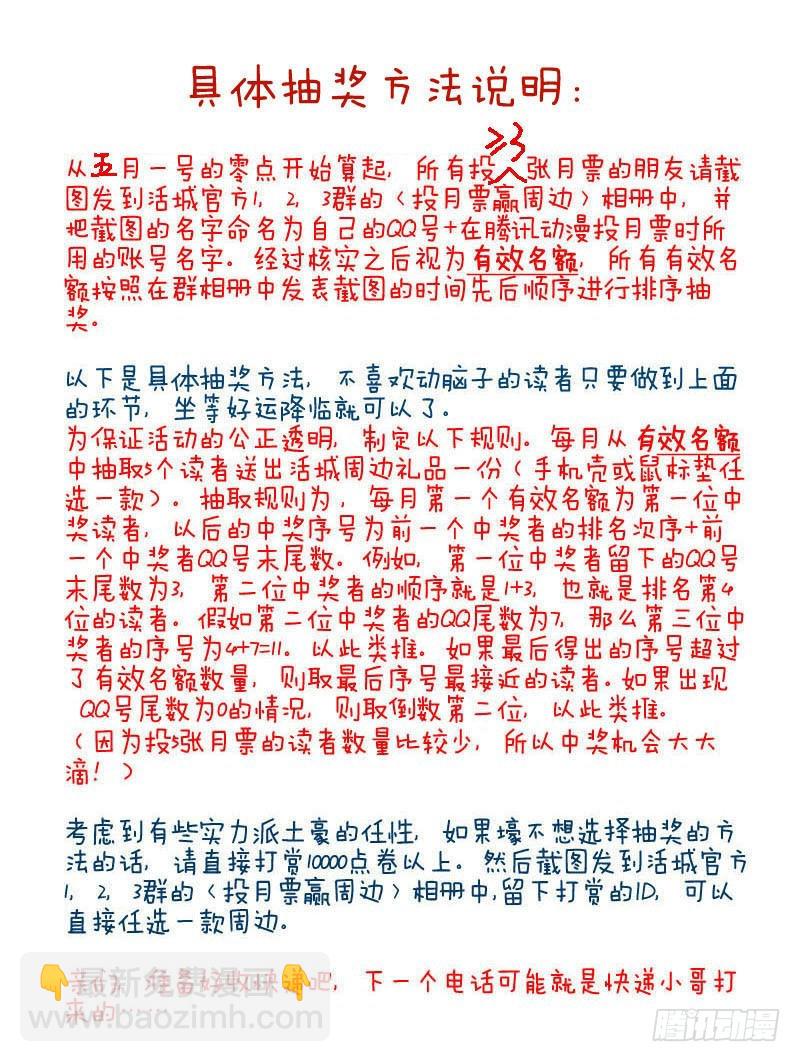 具体抽奖方法说明:
≥3
从五月一号的零点开始算起, 所有投 张月票的朋友请截
图发到活城官方1, 2, 3群的〈投月票赢周边〉相册中, 并
把截图的名字命名为自己的QQ号+在腾讯动漫投月票时所
用的账号名字。经过核实之后视为有效名额, 所有有效名
额按照在群相册中发表截图的时间先后顺序进行排序抽
奖。
以下是具体抽奖方法, 不喜欢动脑子的读者只要做到上面
的环节, 坐等好运降临就可以了。
为保证活动的公正透明, 制定以下规则。每月从有效名额
中抽取5个读者送出活城周边礼品一份(手机壳或鼠标垫任
选一款)。抽取规则为, 每月第一个有效名额为第一位中
奖读者, 以后的中奖序号为前一个中奖者的排名次序+前
一个中奖者QQ号末尾数。例如, 第一位中奖者留下的QQ号
末尾数为3, 第二位中奖者的顺序就是1+3, 也就是排名第4
位的读者。假如第二位中奖者的QQ尾数为7, 那么第三位中
奖者的序号为4+7=11。以此类推。如果最后得出的序号超过
了有效名额数量, 则取最后序号最接近的读者。如果出现
QQ号尾数为0的情况, 则取倒数第二位, 以此类推。
(因为投5张月票的读者数量比较少, 所以中奖机会大大
滴!)
考虑到有些实力派土豪的任性, 如果壕不想选择抽奖的方
法的话, 请直接打赏10000点卷以上。然后截图发到活城官方
1, 2, 3群的〈投月票赢周边〉相册中,留下打赏的ID, 可以
直接任选一款周边。
亲们, 准备好收快递吧, 下一个电话可能就是快递小哥打
来的……
最新免费漫画
www.baozimh.com
腾讯动漫